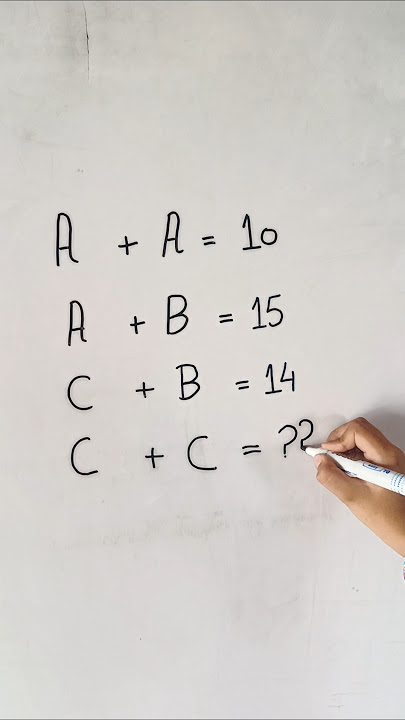 A + A = 10
A + B = 15
C + B = 14
C + C = ??